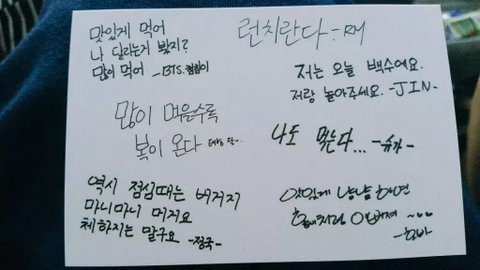 맛있게 먹어
나 달라는거 봤지?
많이 먹어 -BTS.침침이
런치란다 - RM
저는 오늘 백수예요.
저랑 놀아주세요. -JIN-
많이 먹을수록
복이 온다
나도 먹는다... -슈가-
역시 점심때는 버거지
마니마니 머거요
체하지는 말구요 -정국-
맛있게 냠냠하면